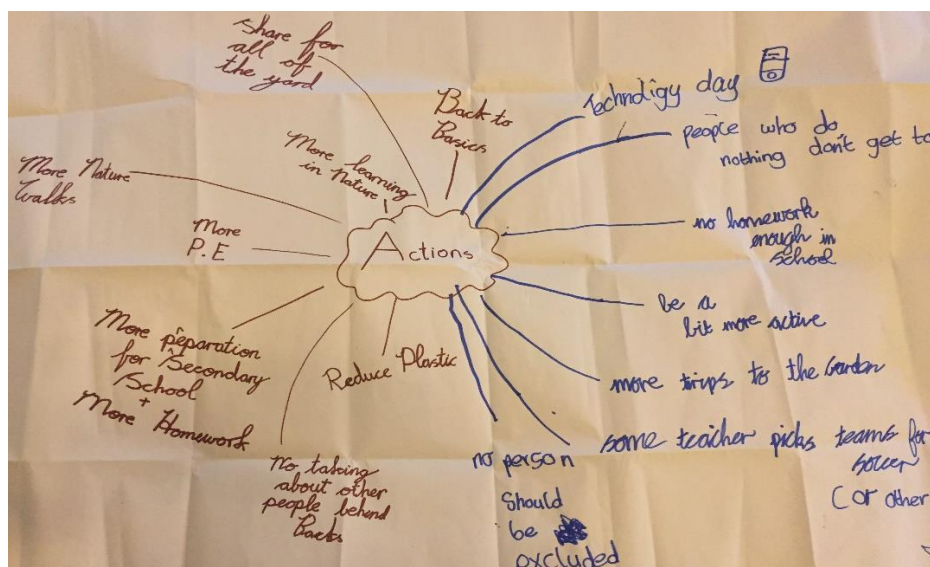 Share for
all of
the yard
Back to
Basics
More learning
in Nature
More Nature
Walks
More
P.E
More preparation
for Secondary
School
+
More Homework
No taking
about other
people behind
Backs
Reduce Plastic
Actions
Technoligy day
people who do
nothing don't get to
no homework
enough in
School
be a
bit more active
more trips to the Garden
some teacher picks teams for
soccer
(or other
no person
should
be
excluded